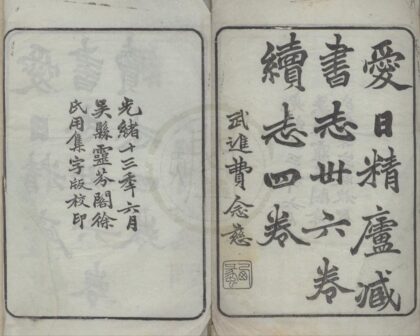 愛日精廬藏
書志卅六卷
續志四卷
武進費念慈
光緒十三年六月
吳縣靈芬閣徐
氏用集字版校印